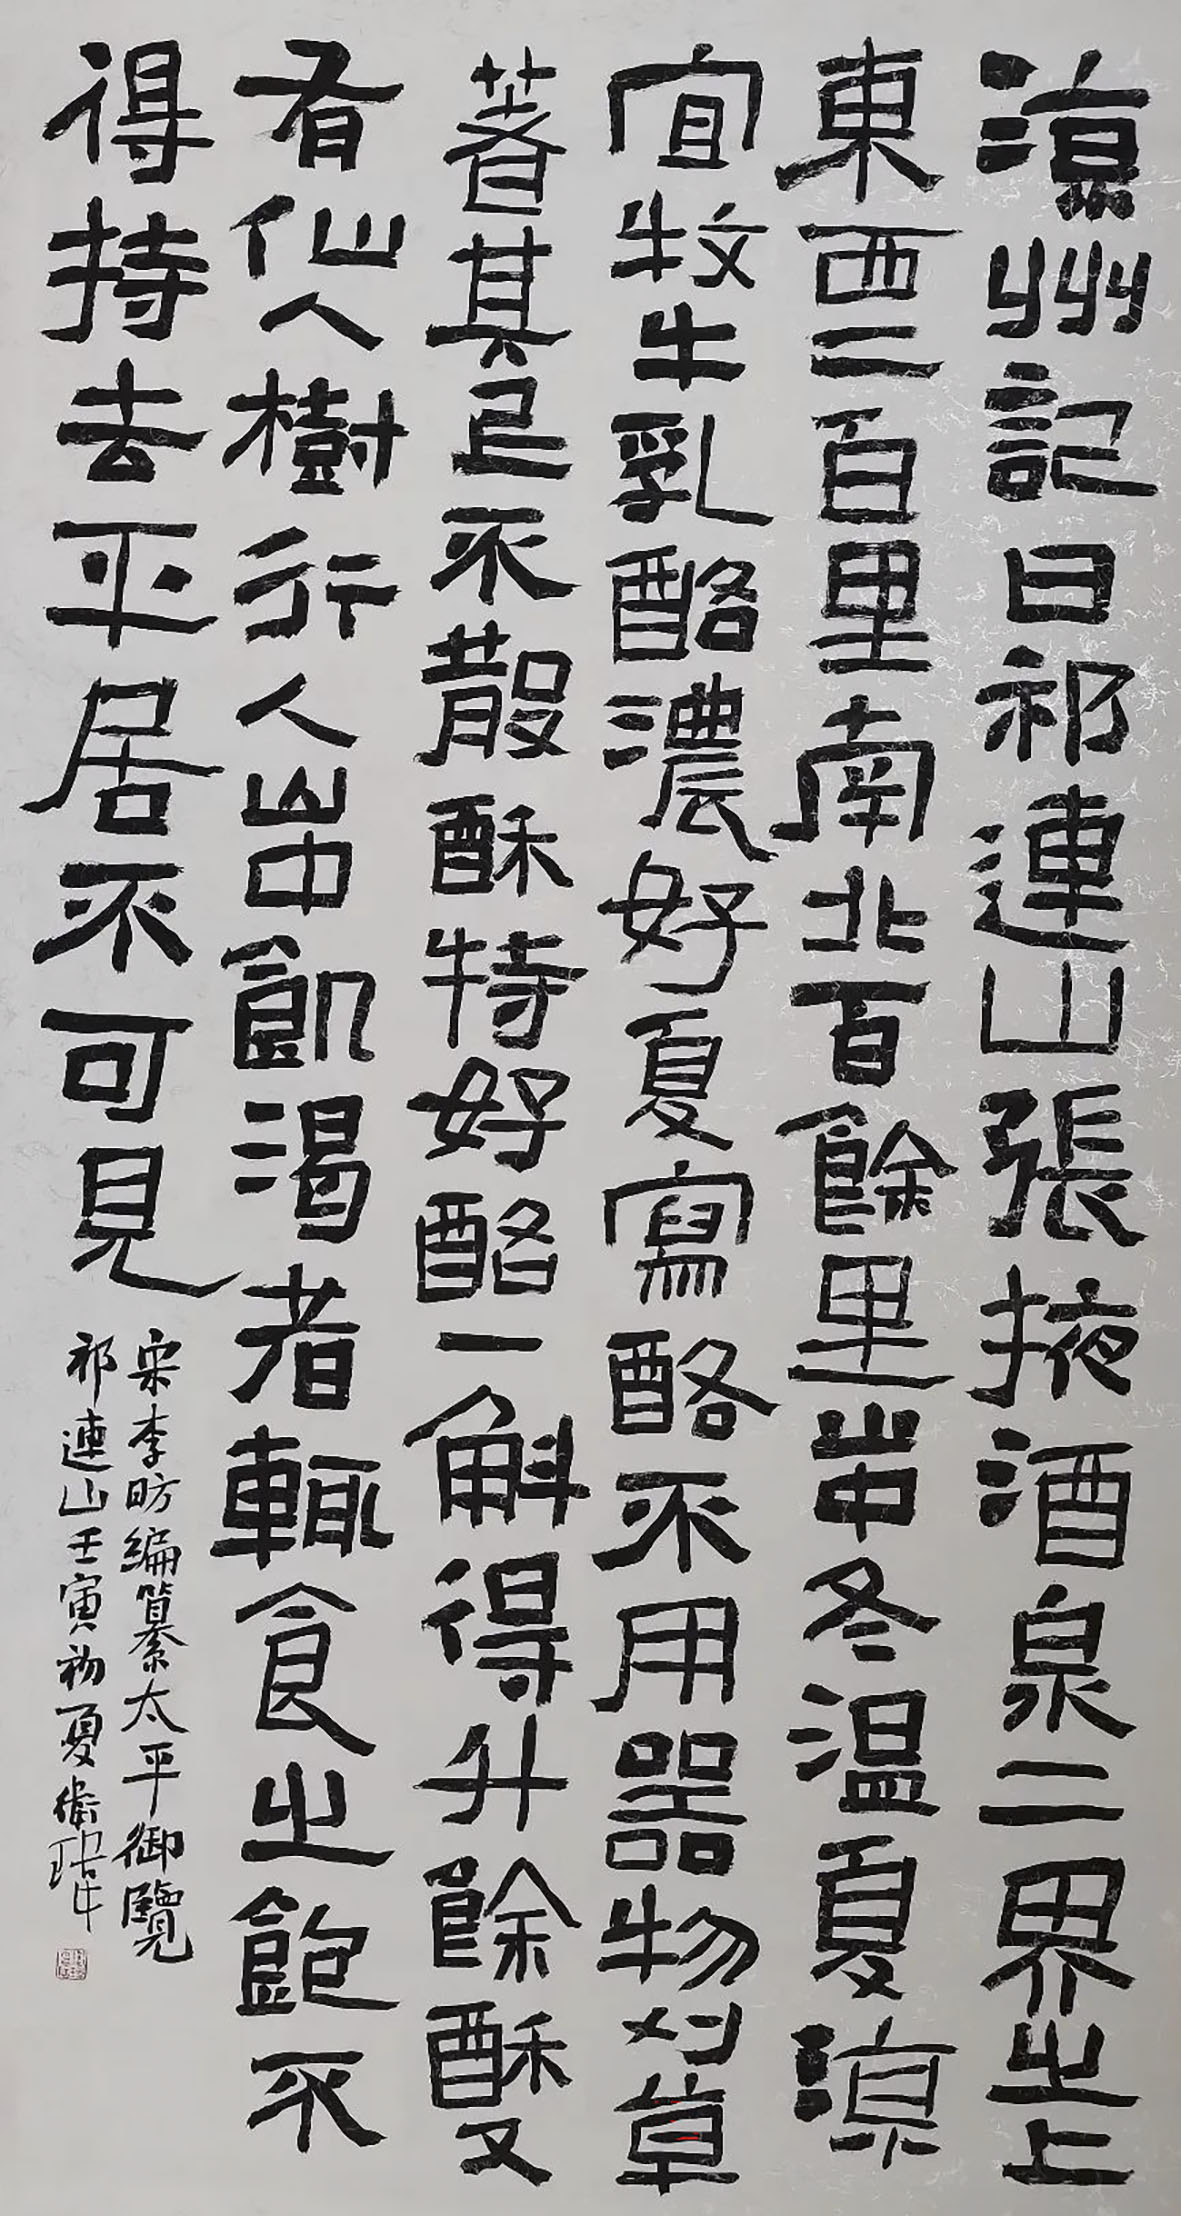 涼州記曰祁連山張掖酒泉二界之上
東西二百里南北百餘里山中冬溫夏涼
宜牧牛乳酪濃好夏寫酪不用器物刈草
著其上不散酥特好酪一斛得升餘酥又
有仙人樹行人山中飢渴者輒食之飽不
得持去平居不可見
宋李昉編纂太平御覽
祁連山壬寅初夏